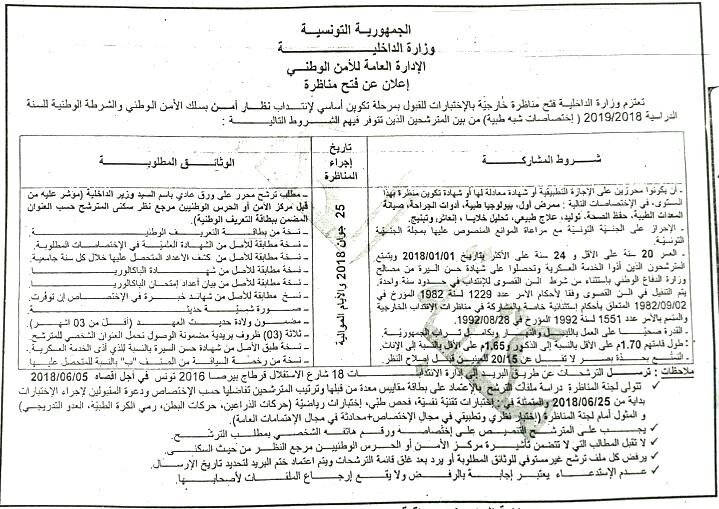 الجمهورية التونسية
وزارة الداخلية
الإدارة العامة للأمن الوطني
إعلان عن فتح مناظرة
تعتزم وزارة الداخلية فتح مناظرة خارجية بالإختبارات للقبول بمرحلة تكوين أساسي لإنتداب نظار أمن بسلك الأمن الوطني والشرطة الوطنية للسنة
الدراسية 2019/2018 ( إختصاصات شبه طبية) من بين المترشحين الذين تتوفر فيهم الشروط التالية :
شروط المشاركة
- أن يكونوا محرزين على الإجازة التطبيقية أو شهادة معادلة لها أو شهادة تكوين منظرة بهذا
المستوى، في الإختصاصات التالية : ممرض أول، بيولوجيا طبية، أدوات الجراحة، صيانة
المعدات الطبية، حفظ الصحة، توليد، علاج طبيعي، تحليل خلايا، إنعاش وتبنيج.
- الإحراز على الجنسية التونسية مع مراعاة الموانع المنصوص عليها بمجلة الجنسية
التونسية.
- العمر 20 سنة على الأقل و 24 سنة على الأكثر بتاريخ 2018/01/01 ويتمتع
المترشحون الذين أدوا الخدمة العسكرية وتحصلوا على شهادة حسن السيرة من مصالح
وزارة الدفاع الوطني بإستثناء من شرط السن القصوى للإنتداب في حدود سنة واحدة.
يتم التنفيل في السن القصوى وفقا لأحكام الأمر عدد 1229 لسنة 1982 المؤرخ في
1982/09/02 المتعلق بأحكام إستثنائية خاصة بالمشاركة في مناظرات الإنتداب الخارجية
والمتمم بالأمر عدد 1551 لسنة 1992 المؤرخ في 1992/08/28.
- القدرة صحيا على العمل بالليل والنهار وبكامل تراب الجمهورية.
- طول قامتهم 1.70م على الأقل بالنسبة إلى الذكور و1.65م على الأقل بالنسبة إلى الإناث.
- التمتع بحدة بصر لا تقل عن 20/15 للعينين قبل إصلاح النظر.
تاريخ
إجراء
المناظرة
25 جوان 2018 والأيام الموالية
الوثائق المطلوبة
- مطلب ترشح محرر على ورق عادي باسم السيد وزير الداخلية (مؤشر عليه من
قبل مركز الأمن أو الحرس الوطنيين مرجع نظر سكنى المترشح حسب العنوان
المضمن ببطاقة التعريف الوطنية).
- نسخة من بطاقة التعريف الوطنية.
- نسخة مطابقة للأصل من الشهادة العلمية في الإختصاصات المطلوبة.
- نسخة مطابقة للأصل من كشف الأعداد المتحصل عليها خلال كل سنة جامعية.
- نسخة مطابقة للأصل من شهادة الباكالوريا.
- نسخة مطابقة للأصل من بيان أعداد إمتحان الباكالوريا.
- نسخ مطابقة للأصل من شهائد خبرة في الإختصاص إن توفرت.
- صورة شمسية حديثة.
- مضمون ولادة حديث العهد (أقل من 03 أشهر)
- ثلاثة (03) ظروف بريدية مضمونة الوصول تحمل العنوان الشخصي للمترشح.
- نسخة طبق الأصل من شهادة حسن السيرة بالنسبة للذي أدى الخدمة العسكرية.
- نسخة من رخصة السياقة من الصنف "ب" بالنسبة للمتحصل عليها
ملاحظات : ترسل الترشحات عن طريق البريد إلى إدارة الإنتدابات 18 شارع الإستقلال قرطاج بيرصا 2016 تونس في أجل أقصاه 2018/06/05
✓ تتولى لجنة المناظرة دراسة ملفات الترشح بالإعتماد على بطاقة مقاييس معدة من قبلها وترتيب المترشحين تفاضليا حسب الإختصاص ودعوة المقبولين لإجراء الإختبارات
بداية من 2018/06/25 والمتمثلة في : إختبارات تقنية نفسية، فحص طبي، إختبارات رياضية (حركات الذراعين، حركات البطن، رمي الكرة الطبية، العدو التدريجي)
و المثول أمام لجنة المناظرة (إختبار نظري وتطبيقي في مجال الإختصاص+محادثة في مجال الإهتمامات العامة).
✓ يجب على المترشح التنصيص على إختصاصه ورقم هاتفه الشخصي بمطلب الترشح.
✓ لا تقبل المطالب التي لا تتضمن تأشيرة مركز الأمن أو الحرس الوطنيين مرجع النظر من حيث السكنى.
✓ يرفض كل ملف ترشح غير مستوفي للوثائق المطلوبة أو يرد بعد غلق قائمة الترشحات ويتم اعتماد ختم البريد لتحديد تاريخ الإرسال.
✓ عدم الإستدعاء يعتبر إجابة بالرفض ولا يقع إرجاع الملفات لأصحابها.